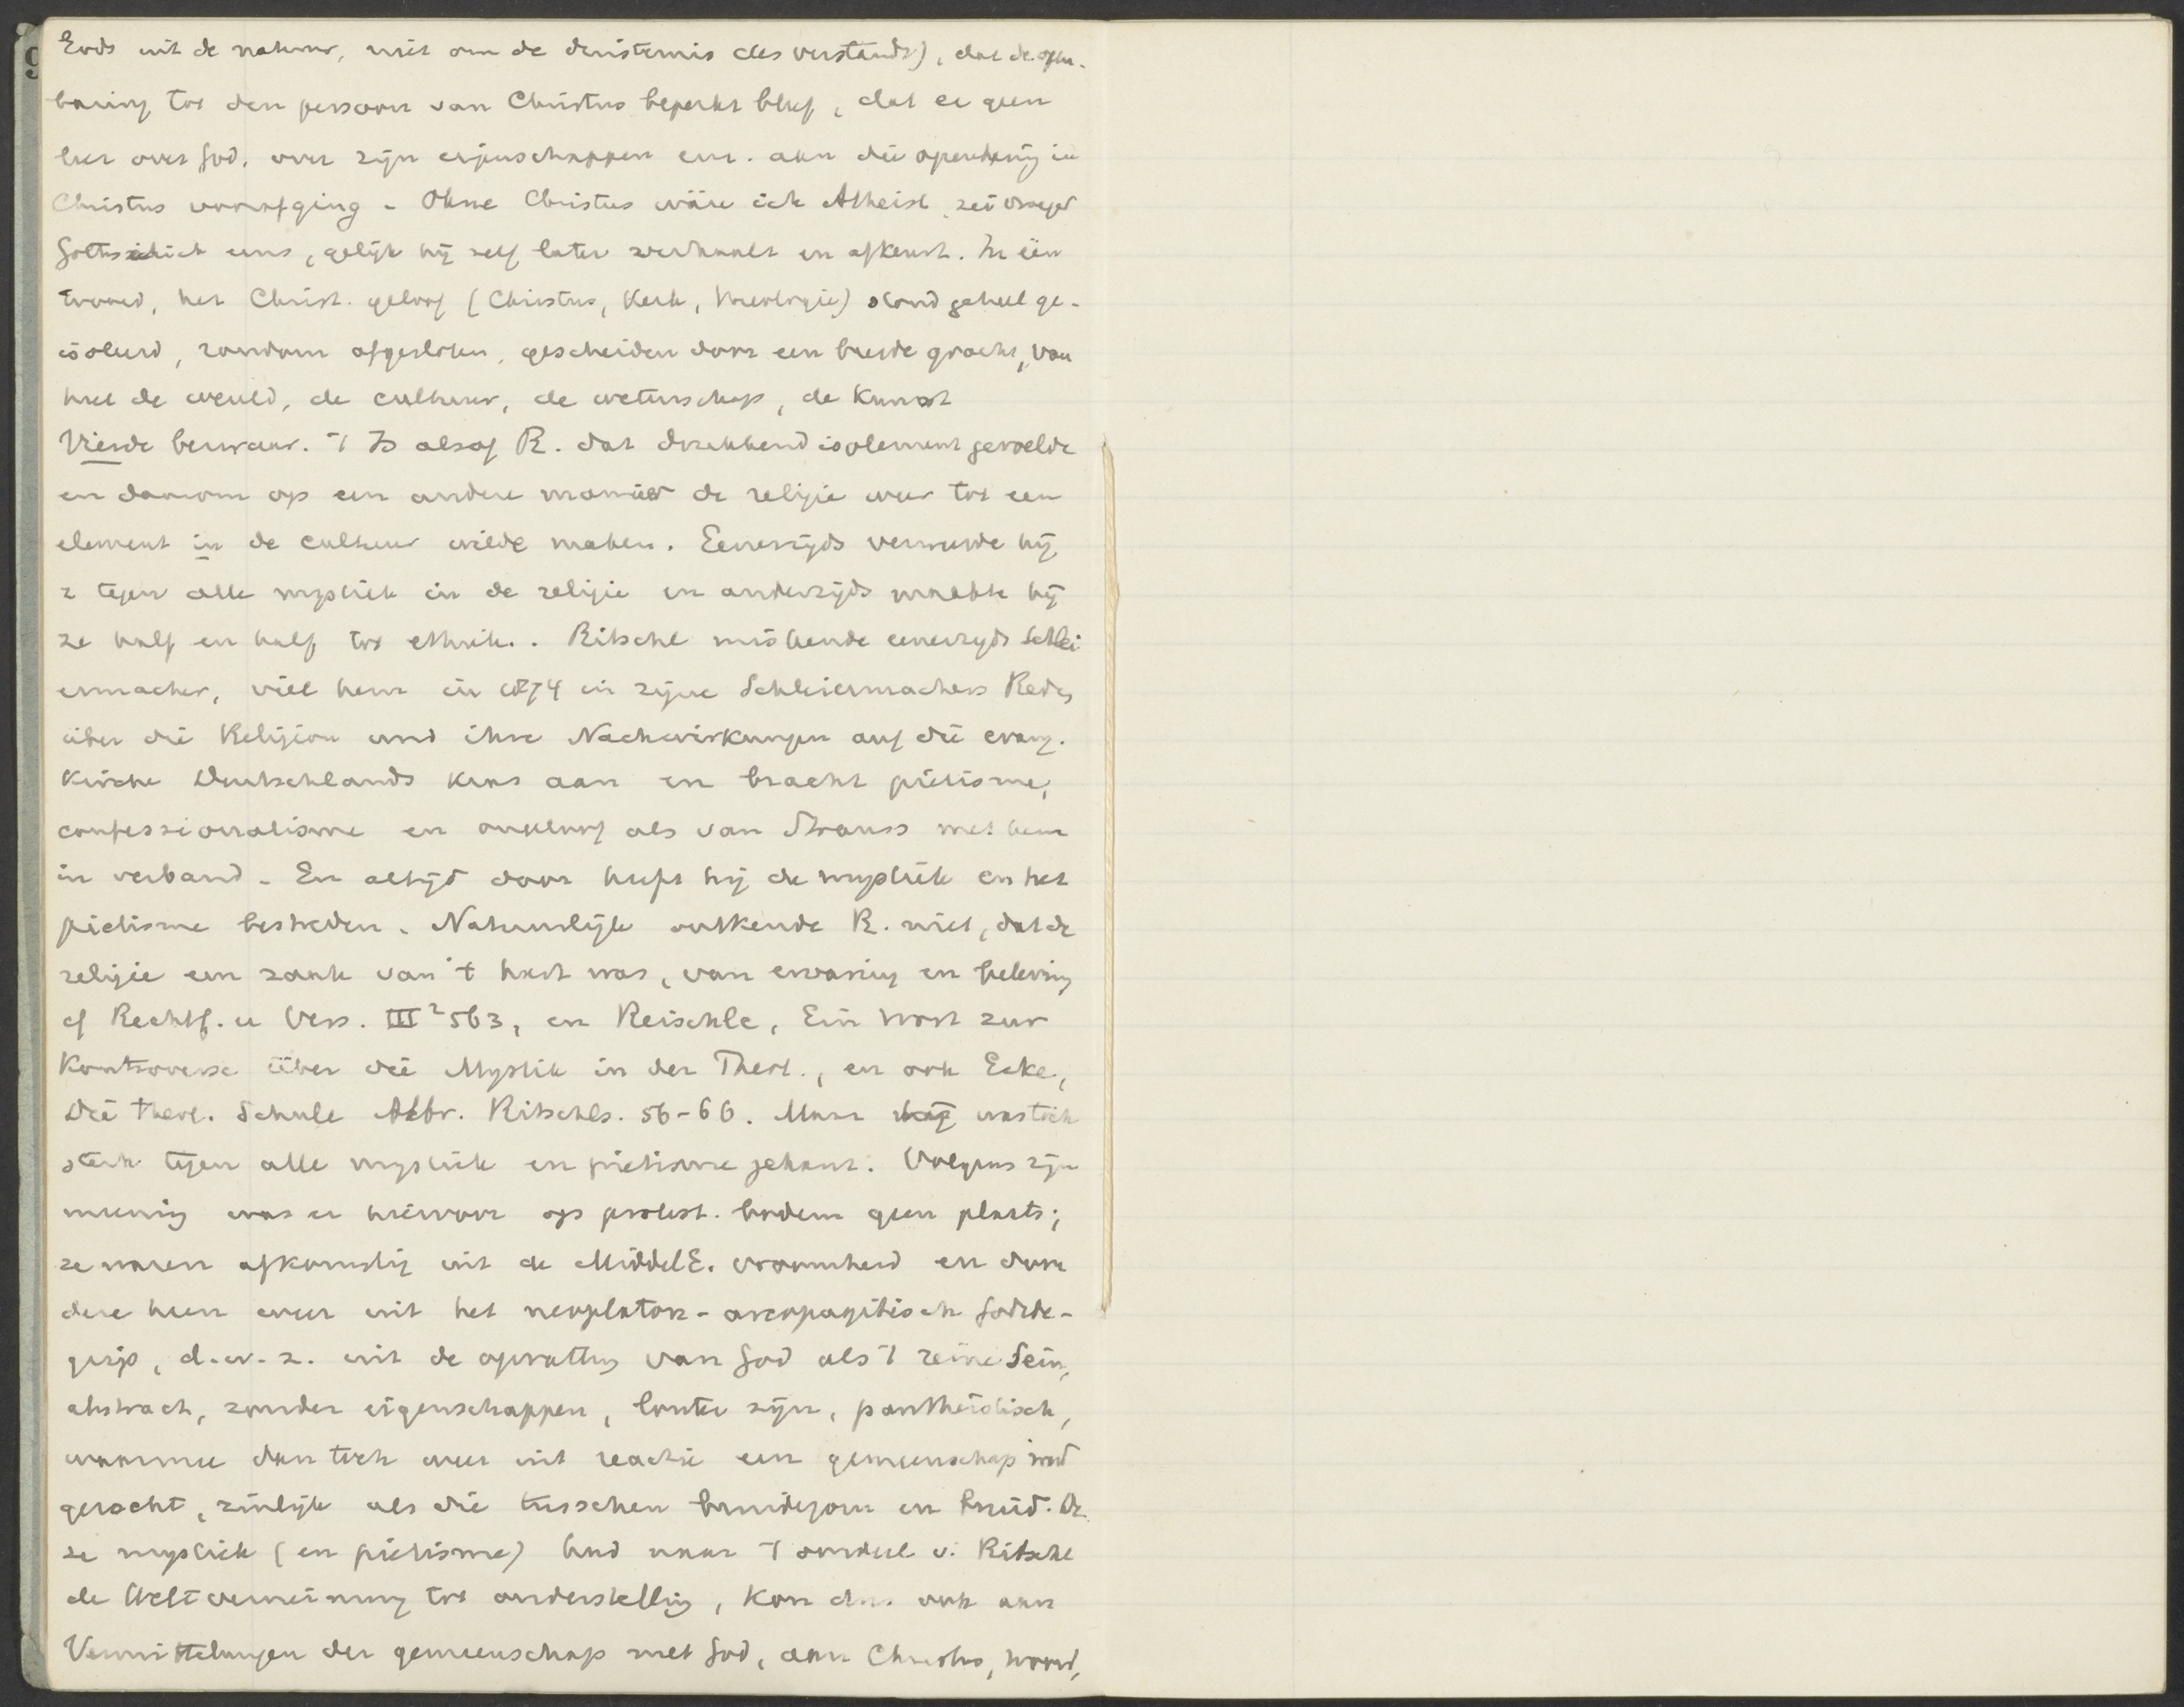 Gods uit de natuur, niet om de duisternis des verstands), dat de open-
baring tot den persoon van Christus beperkt bleef, dat er geen
leer over God, over zijn eigenschappen enz. aan die openbaring in
Christus voorafging - Ohne Christus wäre ich Atheist, zei vroeger
Gottschick eens, gelijk hij zelf later verhaalt en afkeurt. In één
woord, het Christ. geloof (Christus, Kerk, theologie) stond geheel ge-
isoleerd, rondom afgesloten, gescheiden door een breede gracht, van
heel de wereld, de cultuur, de wetenschap, de Kunst
Vierde bezwaar. 't Is alsof R. dat drukkend isolement gevoelde
en daarom op een andere manier de religie weer tot een
element in de cultuur wilde maken. Eenerzijds verweerde hij
z tegen alle mystiek in de religie en anderzijds maakte hij
ze half en half tot ethiek.. Ritschl miskende eenerzijds Schlei
ermacher, viel hem in 1874 in zijne Schleiermachers Reden
über die Religion und ihre Nachwirkungen auf die evang.
Kirche Deutschlands kras aan en bracht piëtisme,
confessionalisme en ongeloof als van Strauss met hem
in verband - En altijd door heeft hij de mystiek en het
piëtisme bestreden. Natuurlijk ontkende R. niet, dat de
religie een zaak van 't hart was, van ervaring en beleving
cf Rechtf. u Vers. III² 563, en Reischle, Ein Wort zur
Kontroverse über die Mystik in der Theol., en ook Ecke,
Die theol. Schule Albr. Ritschls. 56-66. Maar hij was toch
sterk tegen alle mystiek en piëtisme gekant. Volgens zijn
meening was er hiervoor op protest. bodem geen plaats;
ze waren afkomstig uit de MiddelE. vroomheid en door
deze heen weer uit het neoplaton-areopagitisch Godsbe-
grip, d.w.z. uit de opvatting van God als 't reine Sein,
abstract, zonder eigenschappen, louter zijn, pantheïstisch,
waarmee dan toch weer uit reactie een gemeenschap werd
gezocht, zinlijk als die tusschen bruidegom en bruid. De
ze mystiek (en piëtisme) had naar 't oordeel v. Ritschl
de Weltverneinung tot onderstelling, kon dus ook aan
Vermittelungen der gemeenschap met God, aan Christus, woord,